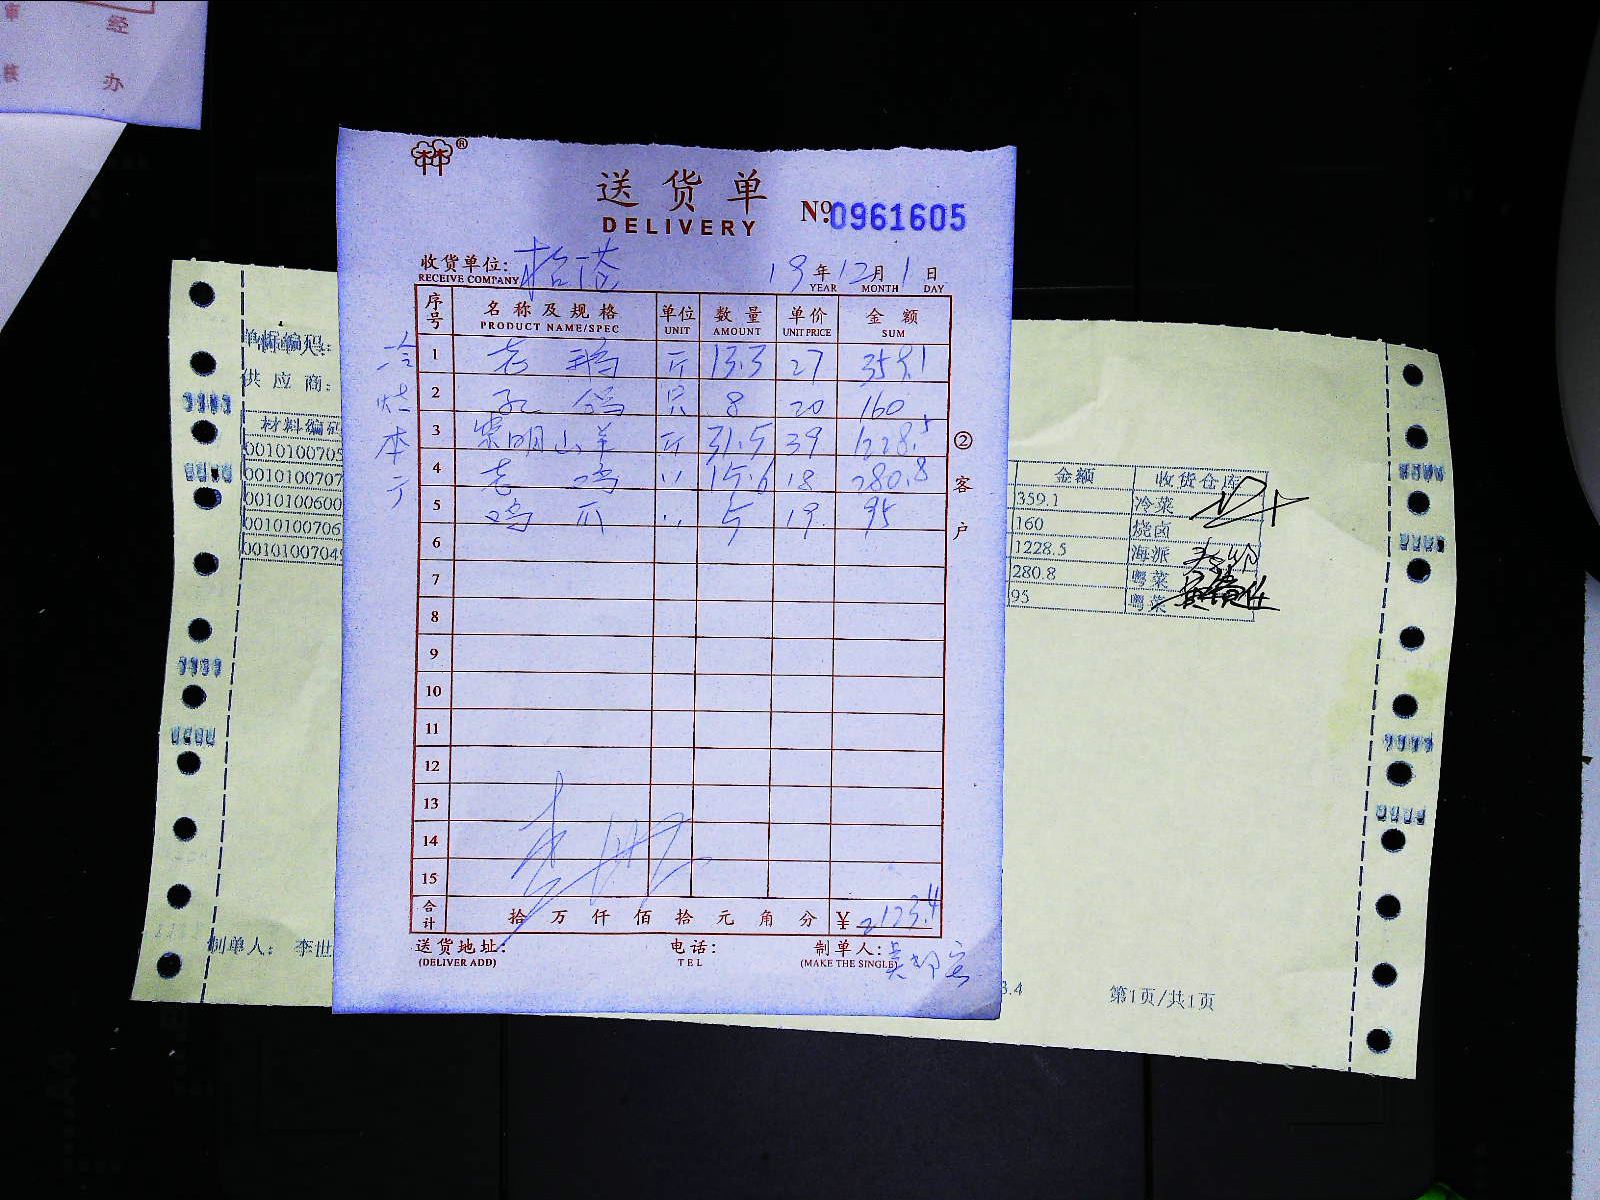 审 经
核 办
®
送货单
DELIVERY
№0961605
收货单位：
RECEIVE COMPANY
19年12月1日
YEAR MONTH DAY
序号 名称及规格 单位 数量 单价 金额
PRODUCT NAME/SPEC UNIT AMOUNT UNIT PRICE SUM
1 老鹅 斤 13.3 27 359.1
2 乳鸽 只 8 20 160
3 崇明山羊 斤 31.5 39 1228.5
4 老鸡 〃 15.6 18 280.8
5 鸡爪 〃 5 19 95
6
7
8
9
10
11
12
13
14
15
合计 拾万仟佰拾元角分 ¥2123.4
送货地址： 电话： 制单人：
(DELIVER ADD) TEL (MAKE THE SINGLE)
②客户
冷
烧
本
供应商：
材料编码
0010100705
0010100707
0010100600
0010100706
0010100704
制单人： 李世
金额 收货仓库
359.1 冷菜
160 烧卤
1228.5 海派
280.8 粤菜
95 粤菜
3.4
第1页/共1页